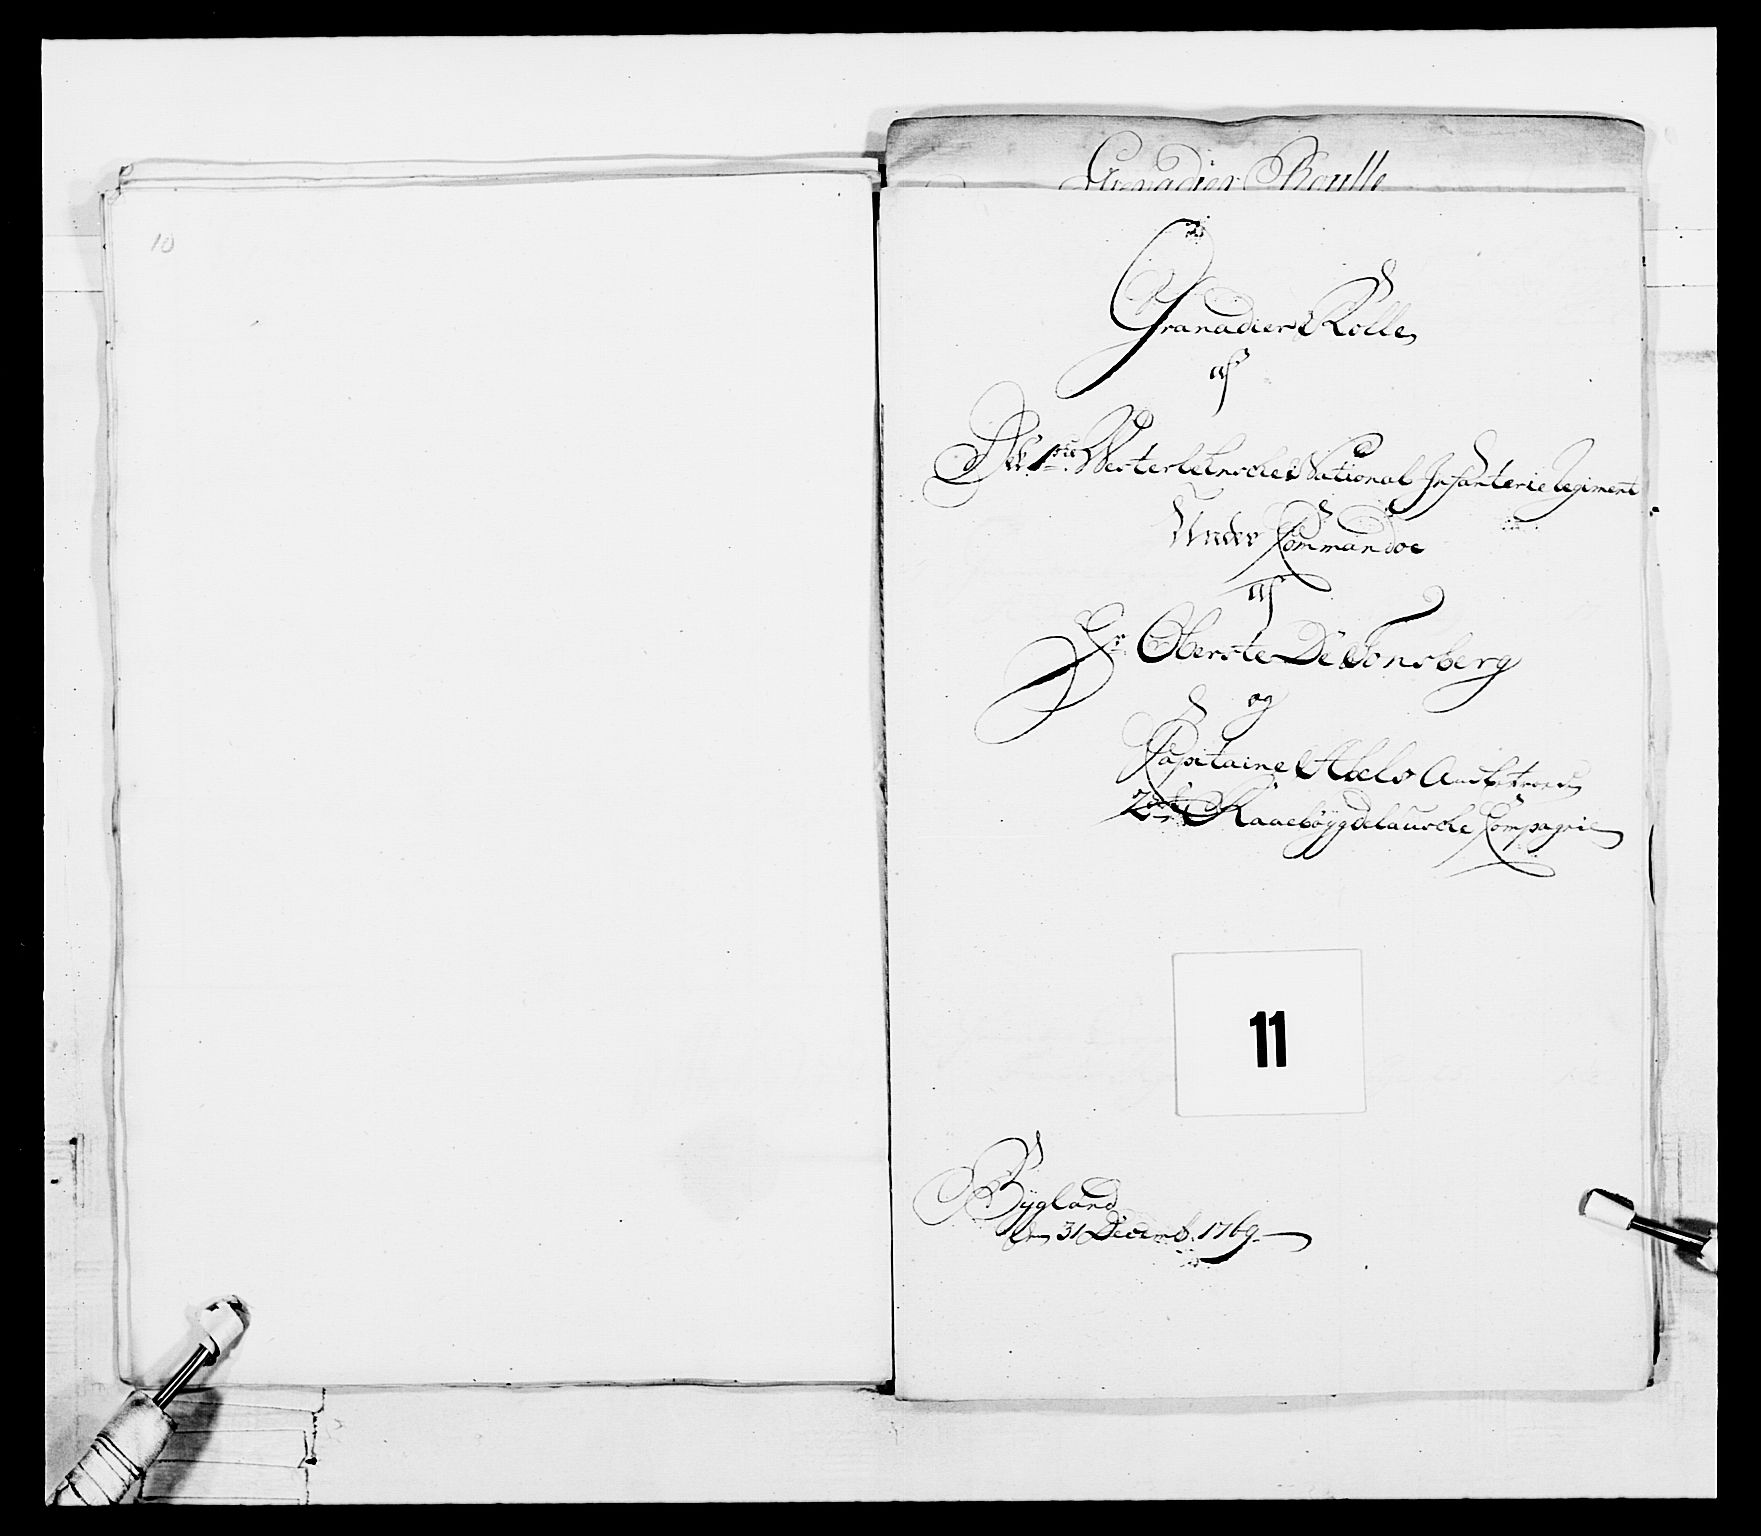 10
Grenadier Roulle
Granadier Rolle
af
Det 1ste Westerlehnske National Infanterie Regiment
Under Commandoe
af
Hr Oberste De Tonsberg
og
Capitaine Abels
2den Raaebøygdelauske Compagnie
11
Bygland
den 31 Decemb. 1769